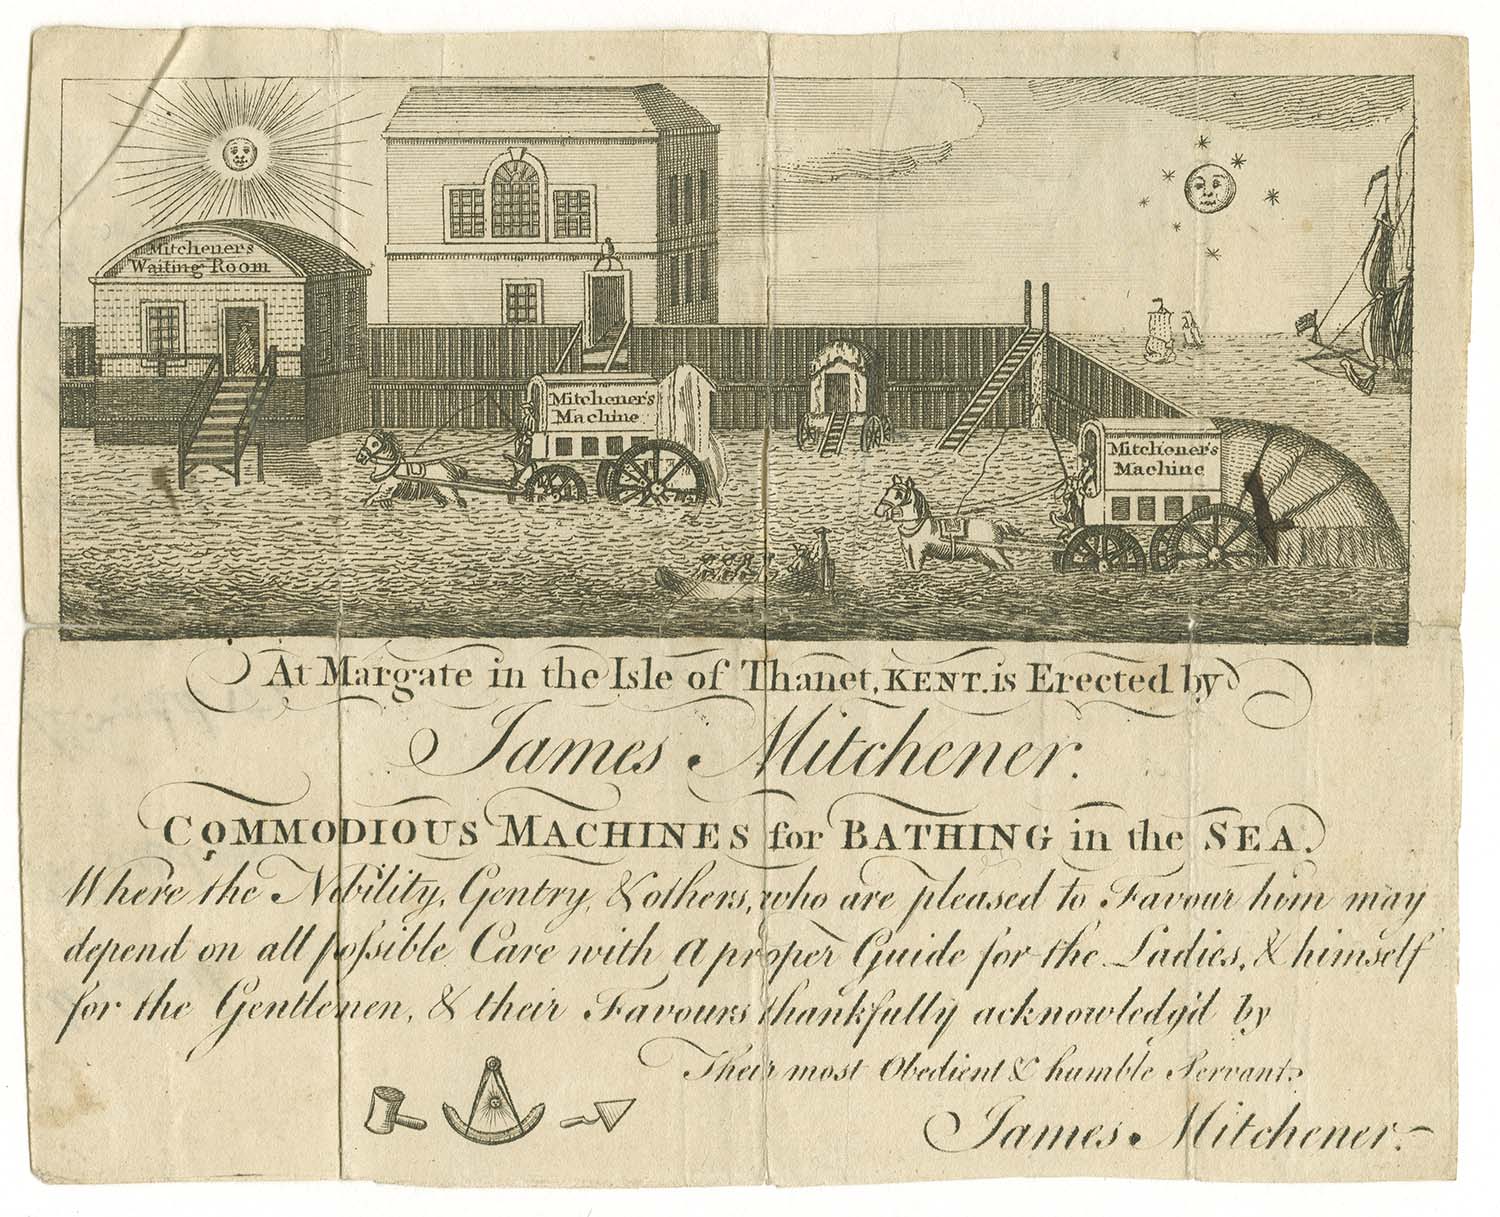 Mitchener's
Waiting Room
Mitchener's
Machine
Mitchener's
Machine
At Margate in the Isle of Thanet, KENT. is Erected by
James Mitchener.
COMMODIOUS MACHINES for BATHING in the SEA.
Where the Nobility, Gentry, & others, who are pleased to Favour him may
depend on all poſsible Care with a proper Guide for the Ladies, & himself
for the Gentlemen, & their Favours thankfully acknowledg'd by
Their most Obedient & humble Servant.
James Mitchener.